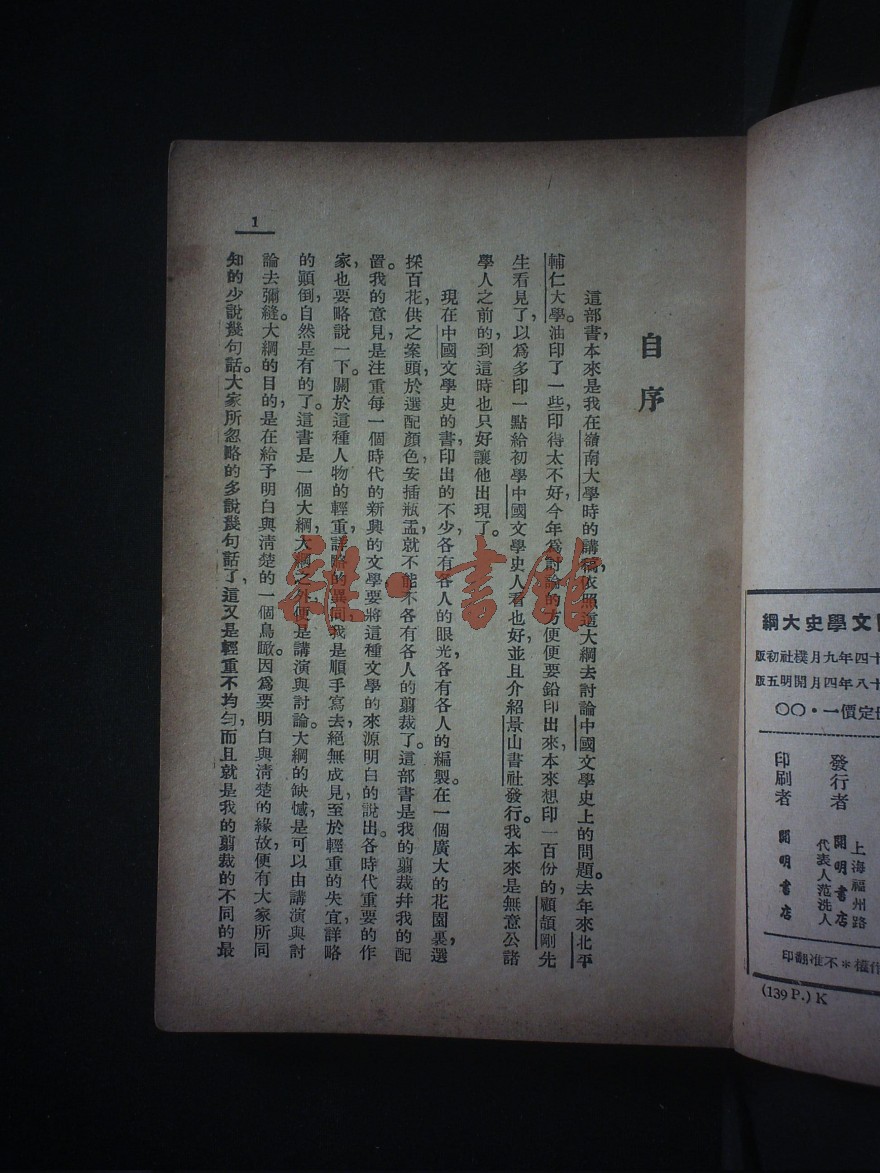 文學史大綱
十四年九月樸社初版
十八年四月開明五版
定價一·〇〇
發行者
上海福州路
開明書店
代表人范洗人
印刷者
開明書店
權*不准翻印
(139 P.) K
自序
這部書,本來是我在嶺南大學時的講稿,依照這大綱去討論中國文學史上的問題。去年來北平
輔仁大學。油印了一些,印得太不好,今年爲討論的方便,便要鉛印出來,本來想印一百份的,顧頡剛先
生看見了,以爲多印一點給初學中國文學史人看也好,並且介紹景山書社發行。我本來是無意公諸
學人之前的,到這時也只好讓他出現了。
現在中國文學史的書,印出的不少,各有各人的眼光,各有各人的編製。在一個廣大的花園裏,選
採百花,供之案頭,於選配顏色,安插瓶盂,就不能不各有各人的剪裁了。這部書是我的剪裁幷我的配
置。我的意見,是注重每一個時代的新興的文學,要將這種文學的來源明白的說出。各時代重要的作
家,也要略說一下。關於這種人物的輕重,詳略的異同,我是順手寫去,絕無成見,至於輕重的失宜,詳略
的顚倒,自然是有的了。這書是一個大綱,大綱之外,便是講演與討論。大綱的缺憾,是可以由講演與討
論去彌縫。大綱的目的,是在給予明白與淸楚的一個鳥瞰。因爲要明白與淸楚的緣故,便有大家所同
知的少說幾句話。大家所忽略的多說幾句話了,這又是輕重不均勻,而且就是我的剪裁的不同的最
1
雜·書館